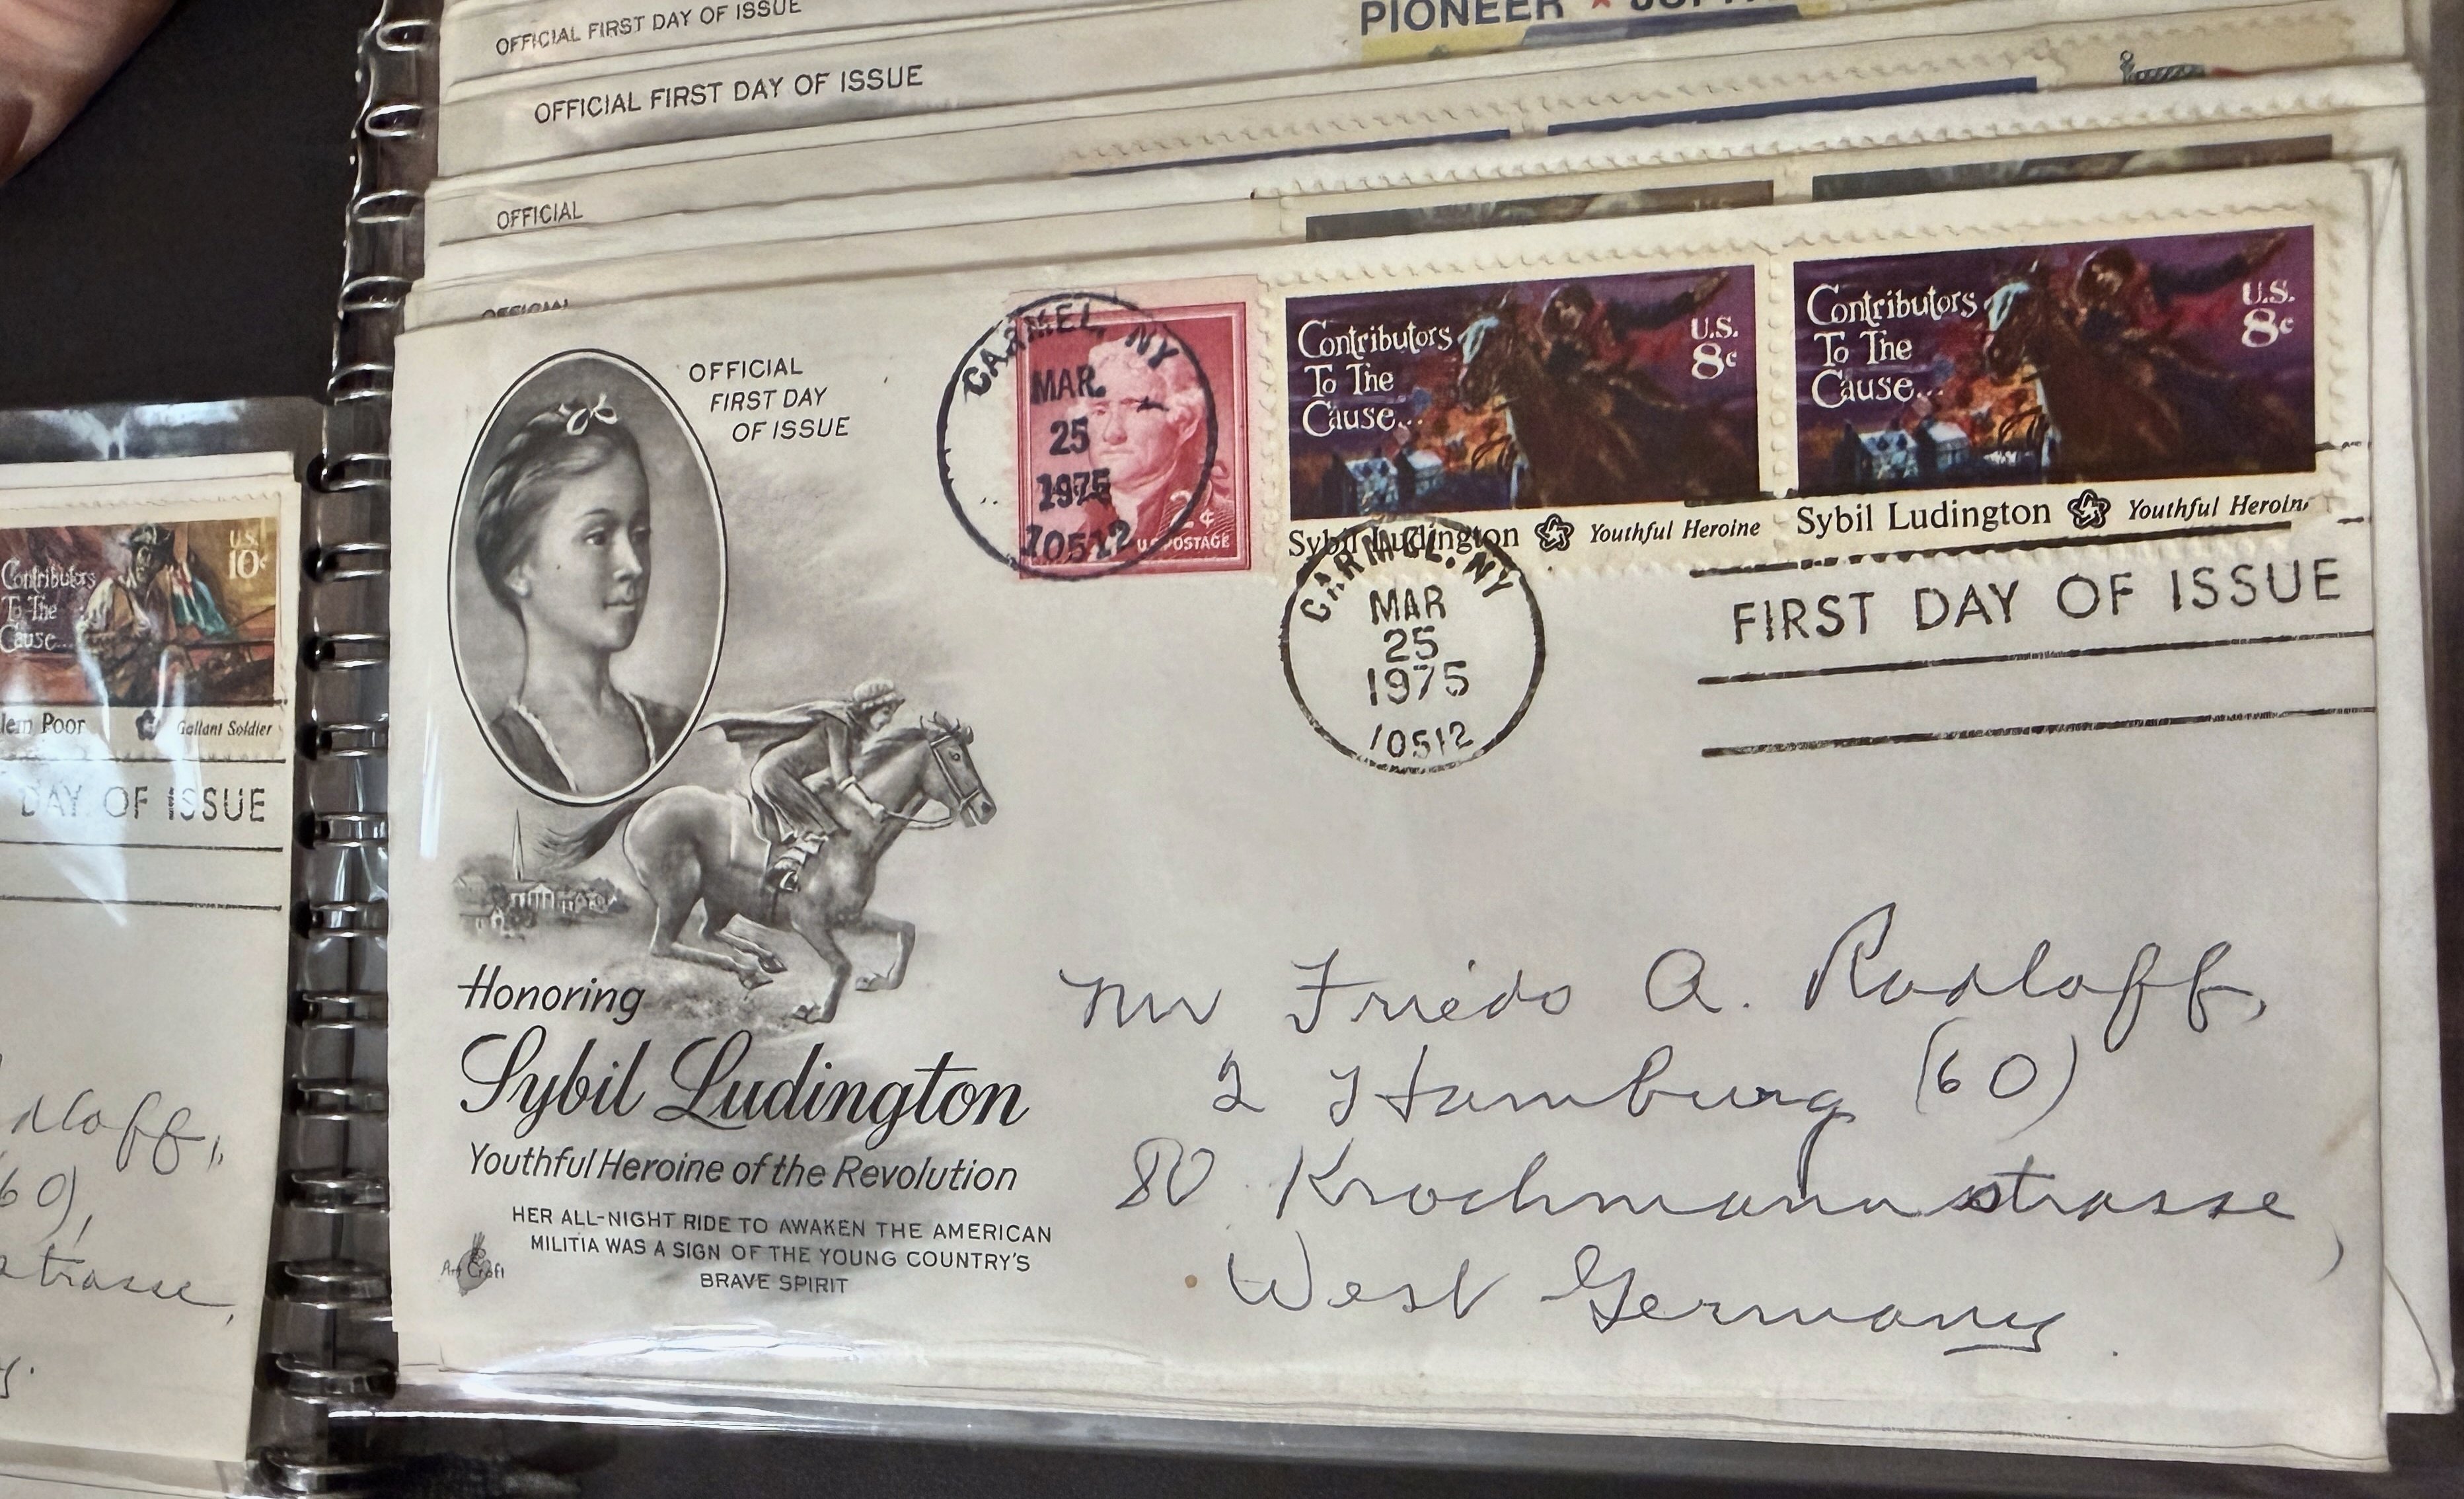 OFFICIAL FIRST DAY OF ISSUE
PIONEER ★
OFFICIAL FIRST DAY OF ISSUE
OFFICIAL
OFFICIAL
OFFICIAL
FIRST DAY
OF ISSUE
CARMEL, NY
MAR
25
1975
10512
2¢
U.S. POSTAGE
Contributors
To The
Cause...
U.S.
8c
Sybil Ludington Youthful Heroine
Contributors
To The
Cause...
U.S.
8c
Sybil Ludington Youthful Heroine
CARMEL, NY
MAR
25
1975
10512
FIRST DAY OF ISSUE
Honoring
Sybil Ludington
Youthful Heroine of the Revolution
HER ALL-NIGHT RIDE TO AWAKEN THE AMERICAN
MILITIA WAS A SIGN OF THE YOUNG COUNTRY'S
BRAVE SPIRIT
Art Craft
Mr Friedo A. Radloff,
2 Hamburg (60)
80 Krochmannstrasse,
West Germany.
Contributors
To The
Cause...
U.S.
10c
lem Poor Gallant Soldier
DAY OF ISSUE
dloff,
60),
strasse,
y.